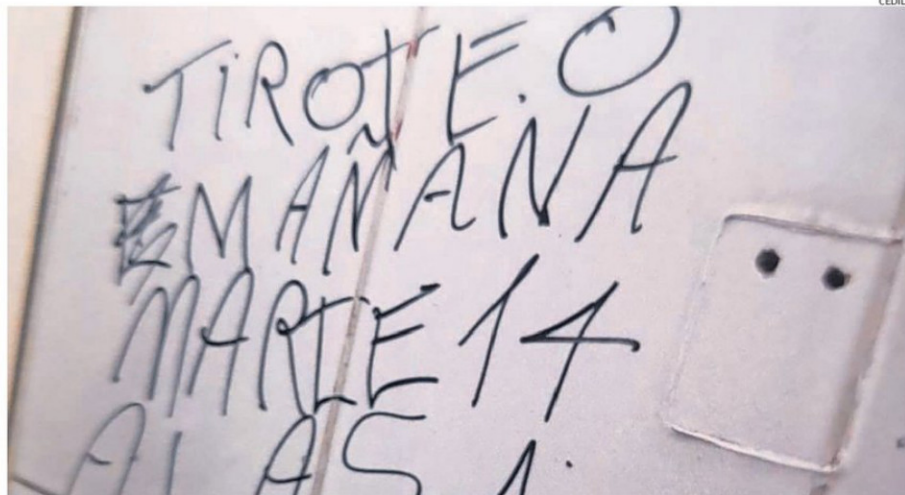 TiROTE.O
MAÑANA
MARTE 14
A LAS 1